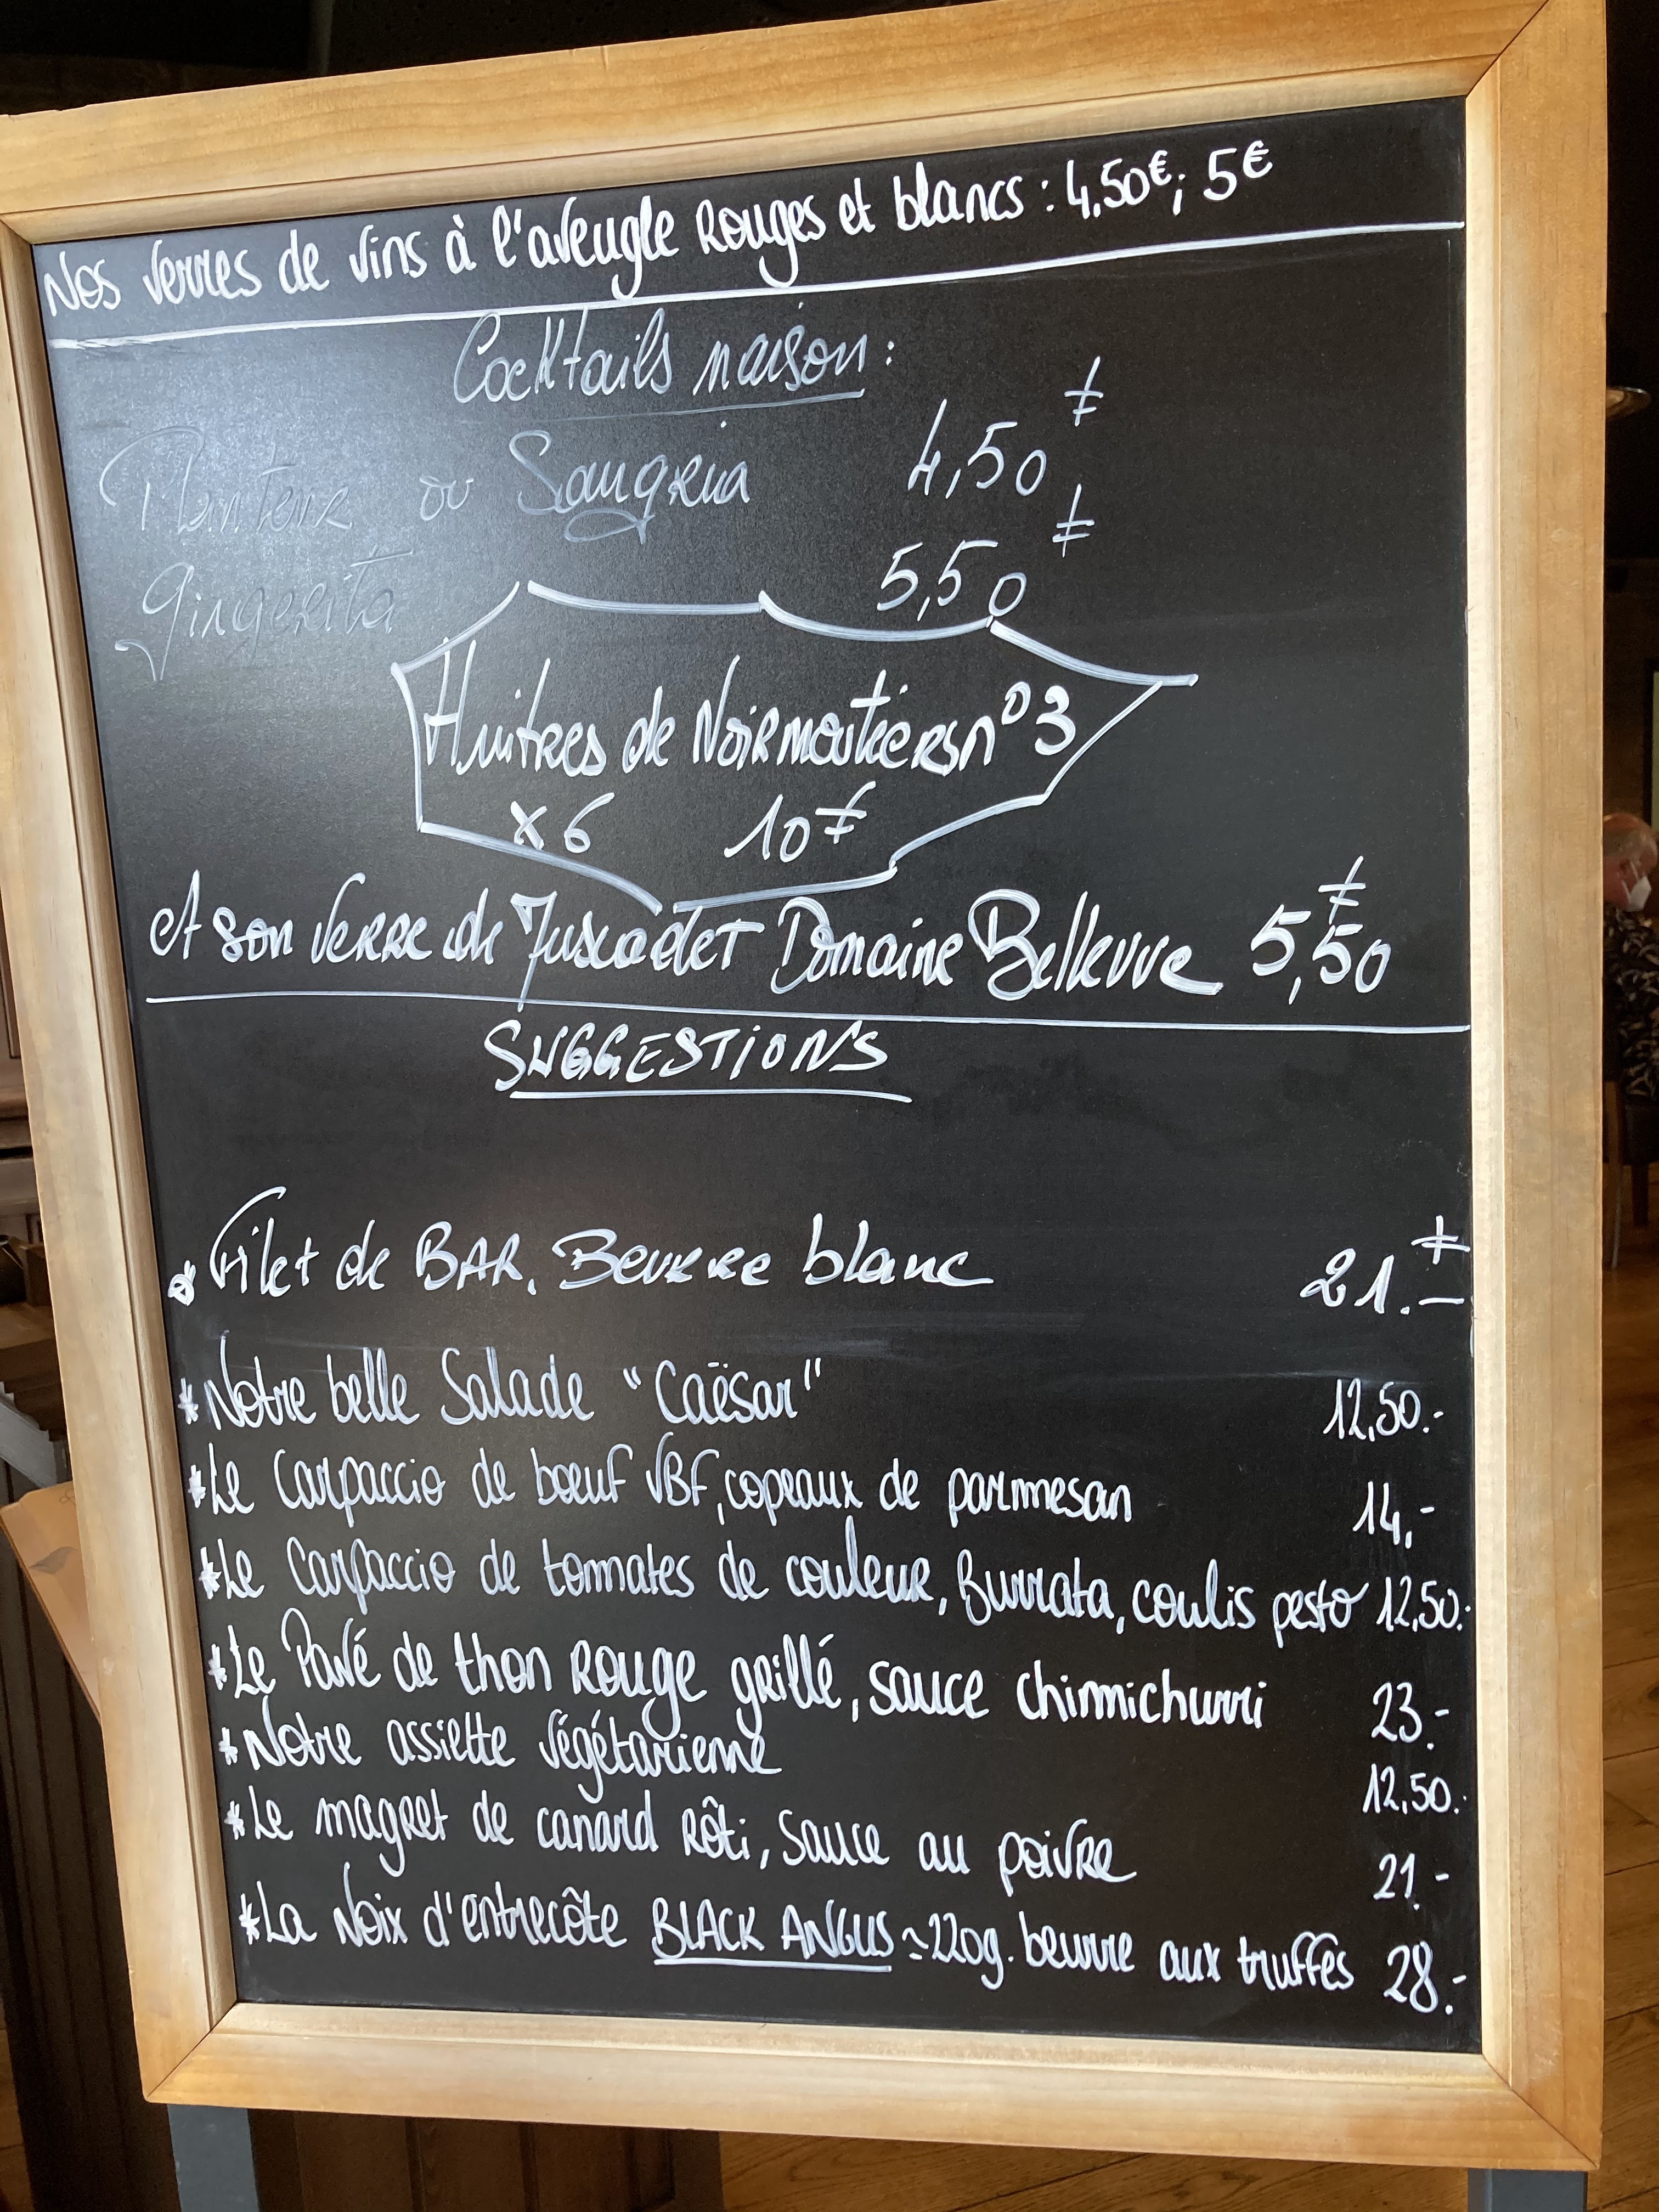 Nos verres de vins à l'aveugle Rouges et blancs : 4,50€; 5€
Cocktails maison :
Planteur ou Sangria 4,50 €
Gingerita 5,50 €
Huitres de Noirmoutiers n°3
x 6 10 €
et son verre de Muscadet Domaine Bellevue 5,50 €
SUGGESTIONS
* Filet de BAR, Beurre blanc 21.- €
* Notre belle Salade "Caësar" 12,50.-
* Le Carpaccio de bœuf VBF, copeaux de parmesan 14,-
* Le Carpaccio de tomates de couleur, Burrata, coulis pesto 12,50.
* Le Pavé de thon Rouge grillé, sauce chimmichurri 23.-
* Notre assiette végétarienne 12,50.
* Le magret de canard Rôti, Sauce au poivre 21.-
* La Noix d'entrecôte BLACK ANGUS ≃220g. beurre aux truffes 28.-